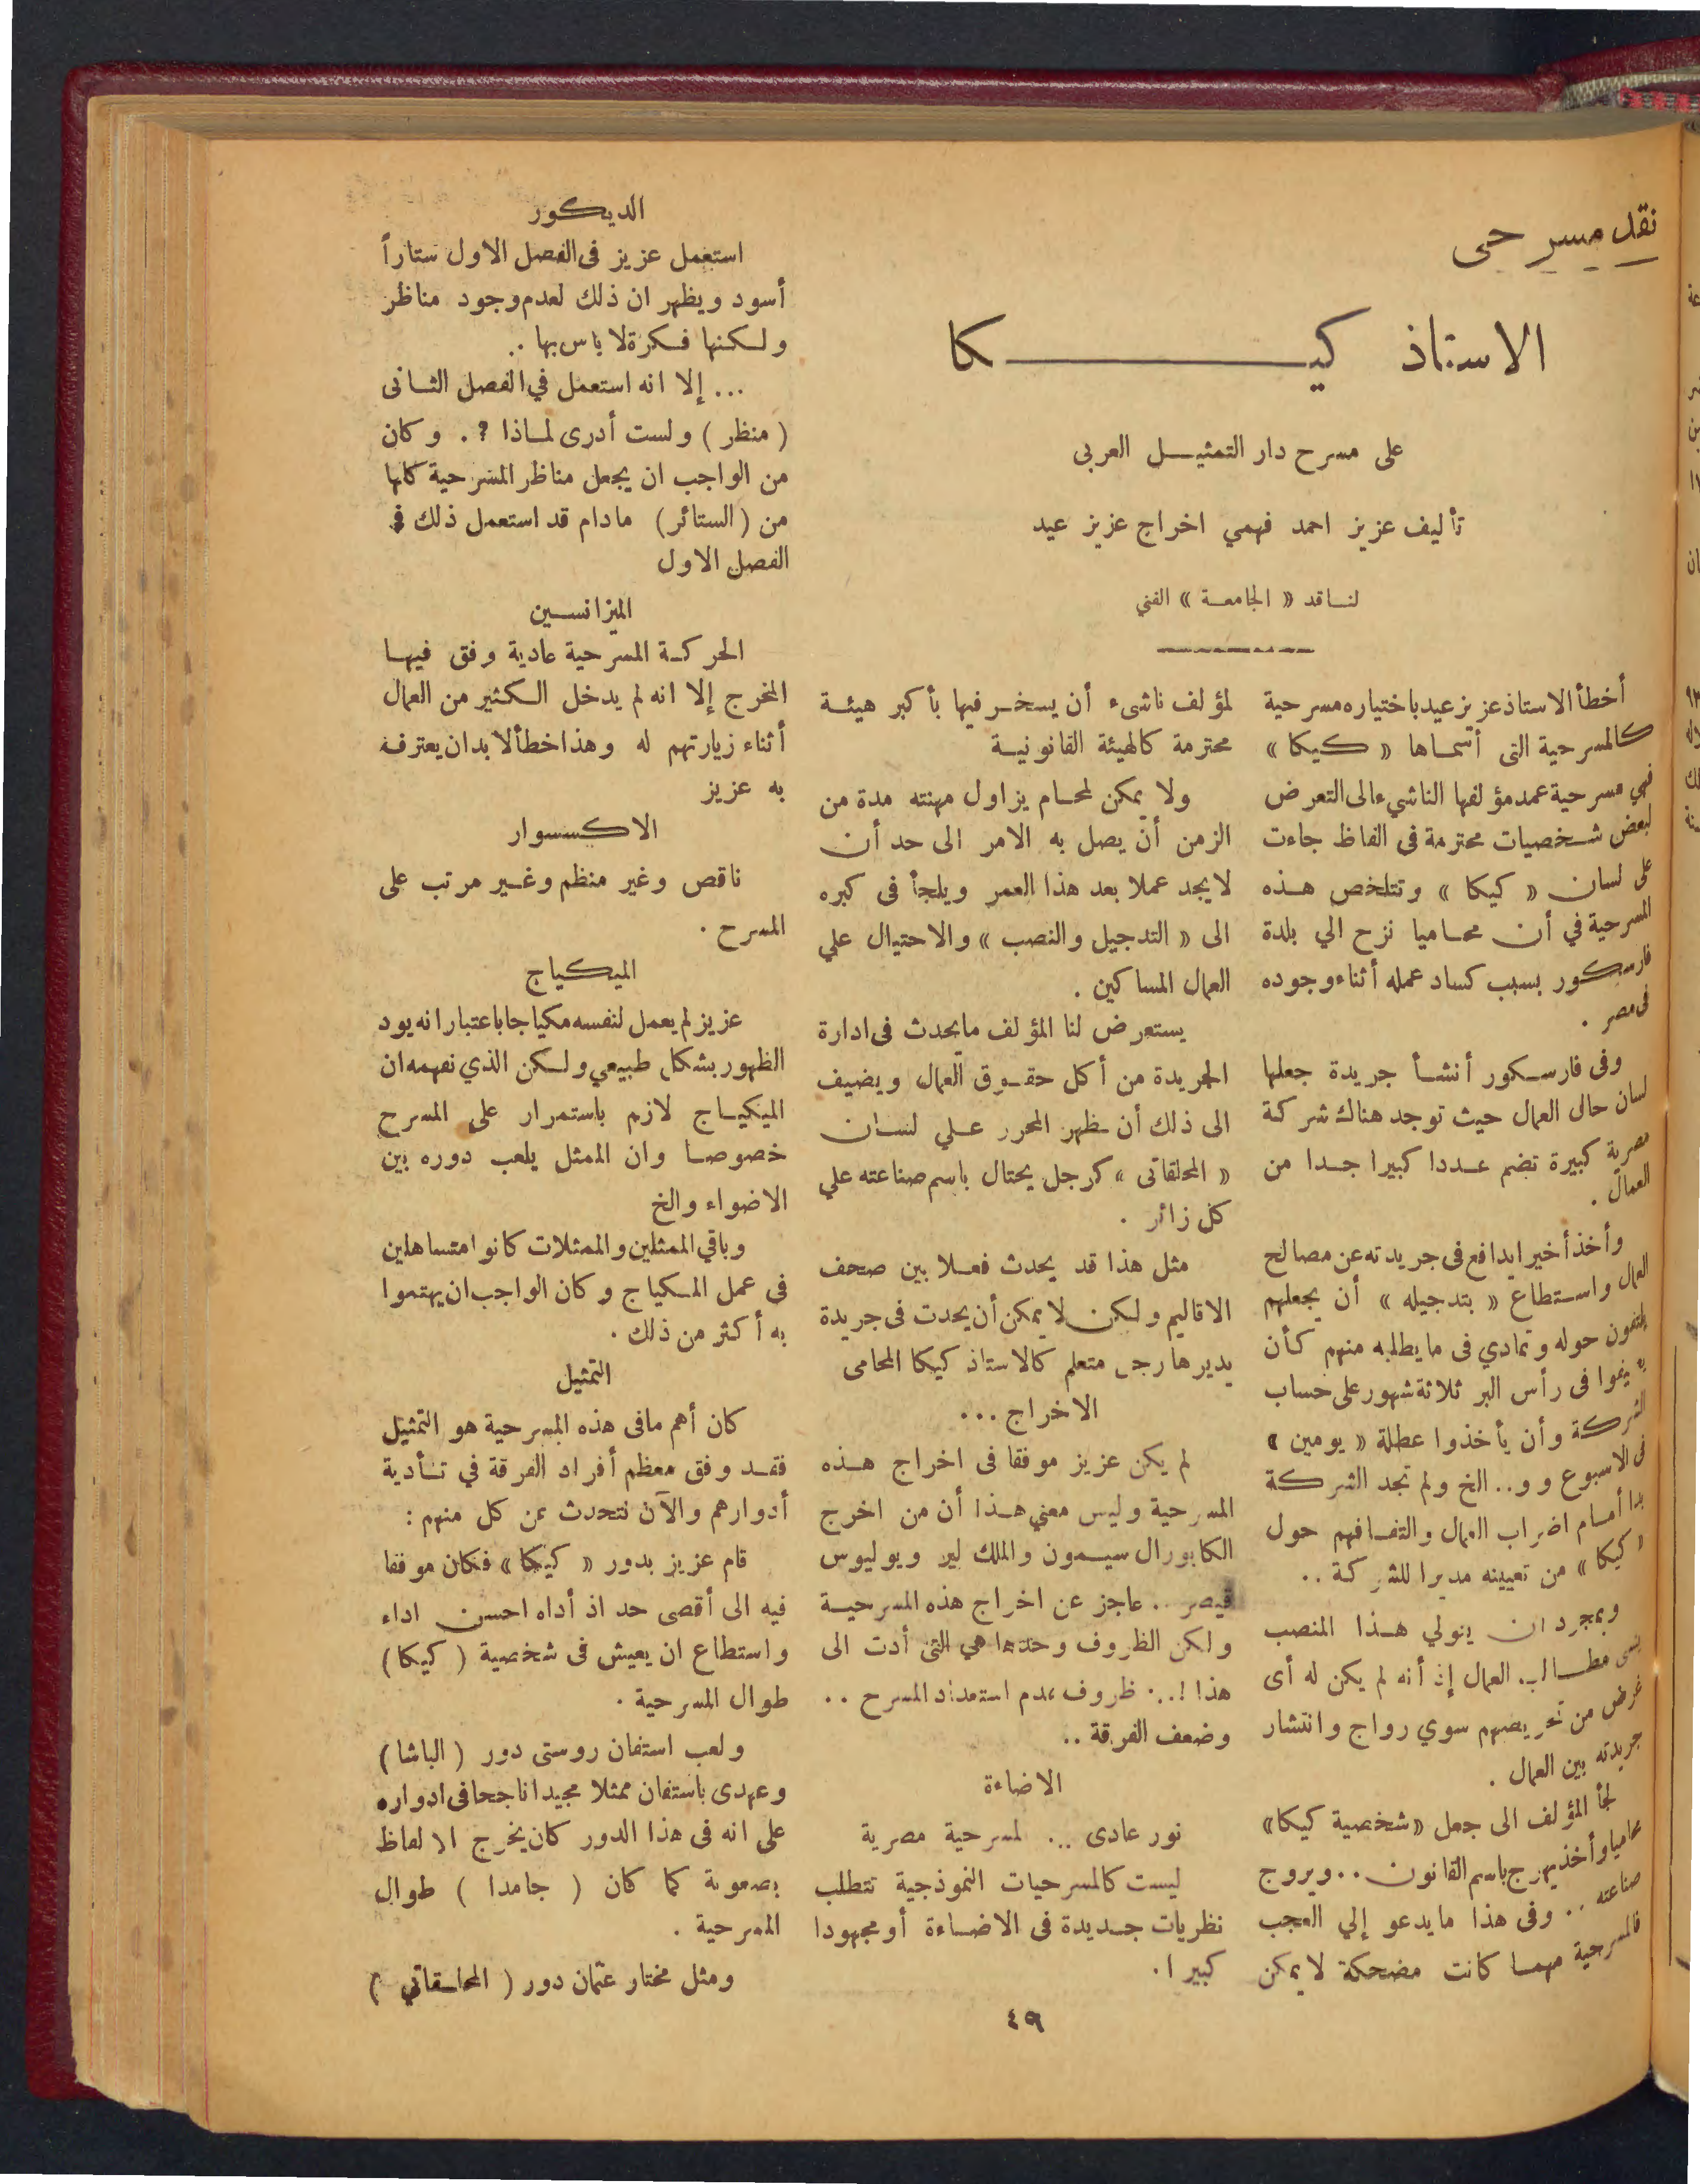 نقد مسرحى
الاستاذ كيكا
على مسرح دار التمثيل العربى
تأليف عزيز احمد فهمي اخراج عزيز عيد
لناقد « الجامعة » الفني
أخطأ الاستاذ عزيز عيد باختياره مسرحية
كالمسرحية التى أسماها « كيكا »
فهي مسرحية عمد مؤلفها الناشىء الى التعرض
لبعض شخصيات محترمة فى الفاظ جاءت
على لسان « كيكا » وتتلخص هذه
المسرحية في أن محاميا نزح الي بلدة
فارسكور بسبب كساد عمله أثناء وجوده
فى مصر .
وفى فارسكور أنشأ جريدة جعلها
لسان حال العمال حيث توجد هناك شركة
مصرية كبيرة تضم عددا كبيرا جدا من
العمال .
وأخذ أخيرا يدافع فى جريدته عن مصالح
العمال واستطاع « بتدجيله » أن يجعلهم
يلتفون حوله وتمادي فى ما يطلبه منهم كأن
يقيموا فى رأس البر ثلاثة شهور على حساب
الشركة وأن يأخذوا عطلة « يومين »
فى الاسبوع و و.. الخ ولم تجد الشركة
بدا أمام اضراب العمال والتفافهم حول
« كيكا » من تعيينه مديرا للشركة ..
وبمجرد ان يتولي هذا المنصب
ينسى مطالب العمال إذ أنه لم يكن له أى
غرض من تحريضهم سوي رواج وانتشار
جريدته بين العمال .
لجأ المؤلف الى جعل «شخصية كيكا»
محاميا وأخذ يهرج باسم القانون .. ويروج
صناعته .. وفى هذا ما يدعو إلي العجب
فالمسرحية مهما كانت مضحكة لا يمكن
لمؤلف ناشىء أن يسخر فيها بأكبر هيئة
محترمة كالهيئة القانونية
ولا يمكن لمحام يزاول مهنته مدة من
الزمن أن يصل به الامر الى حد أن
لا يجد عملا بعد هذا العمر ويلجأ فى كبره
الى « التدجيل والنصب » والاحتيال علي
العمال المساكين .
يستعرض لنا المؤلف ما يحدث فى ادارة
الجريدة من أكل حقوق العمال ويضيف
الى ذلك أن يظهر المحرر علي لسان
« المحلقاتى » كرجل يحتال باسم صناعته علي
كل زائر .
مثل هذا قد يحدث فعلا بين صحف
الاقاليم ولكن لا يمكن أن يحدث فى جريدة
يديرها رجل متعلم كالاستاذ كيكا المحامى
الاخراج ...
لم يكن عزيز موفقا فى اخراج هذه
المسرحية وليس معني هذا أن من اخرج
الكابورال سيمون والملك لير ويوليوس
قيصر .. عاجز عن اخراج هذه المسرحية
ولكن الظروف وحدها هي التى أدت الى
هذا !.. ظروف عدم استعداد المسرح ..
وضعف الفرقة ..
الاضاءة
نور عادى .. لمسرحية مصرية
ليست كالمسرحيات النموذجية تتطلب
نظريات جديدة فى الاضاءة أو مجهودا
كبيرا.
الديكور
استعمل عزيز فى الفصل الاول ستاراً
أسود ويظهر ان ذلك لعدم وجود مناظر
ولكنها فكرة لا باس بها ..
... إلا انه استعمل في الفصل الثانى
( منظر ) ولست أدرى لماذا ؟ . وكان
من الواجب ان يجعل مناظر المسرحية كلها
من ( الستائر ) مادام قد استعمل ذلك فى
الفصل الاول
الميزانسين
الحركة المسرحية عادية وفق فيها
المخرج إلا انه لم يدخل الكثير من العمال
أثناء زيارتهم له وهذا خطأ لا بد ان يعترف
به عزيز
الاكسسوار
ناقص وغير منظم وغير مرتب على
المسرح .
الميكياج
عزيز لم يعمل لنفسه مكياجا باعتبار انه يود
الظهور بشكل طبيعي ولكن الذي نفهمه ان
الميكياج لازم باستمرار على المسرح
خصوصا وان الممثل يلعب دوره بين
الاضواء والخ
وباقي الممثلين والممثلات كانوا متساهلين
فى عمل المكياج وكان الواجب ان يهتموا
به أكثر من ذلك .
التمثيل
كان أهم مافى هذه المسرحية هو التمثيل
فقد وفق معظم أفراد الفرقة في تأدية
أدوارهم والآن نتحدث عن كل منهم :
قام عزيز بدور « كيكا » فكان موفقا
فيه الى أقصى حد اذ أداه احسن اداء
واستطاع ان يعيش فى شخصية ( كيكا )
طوال المسرحية .
ولعب استفان روستى دور ( الباشا )
وعهدى باستفان ممثلا مجيدا ناجحا فى ادواره
على انه فى هذا الدور كان يخرج الالفاظ
بصعوبة كما كان ( جامدا ) طوال
المسرحية .
ومثل مختار عثمان دور ( المحلقاتي )
٤٩